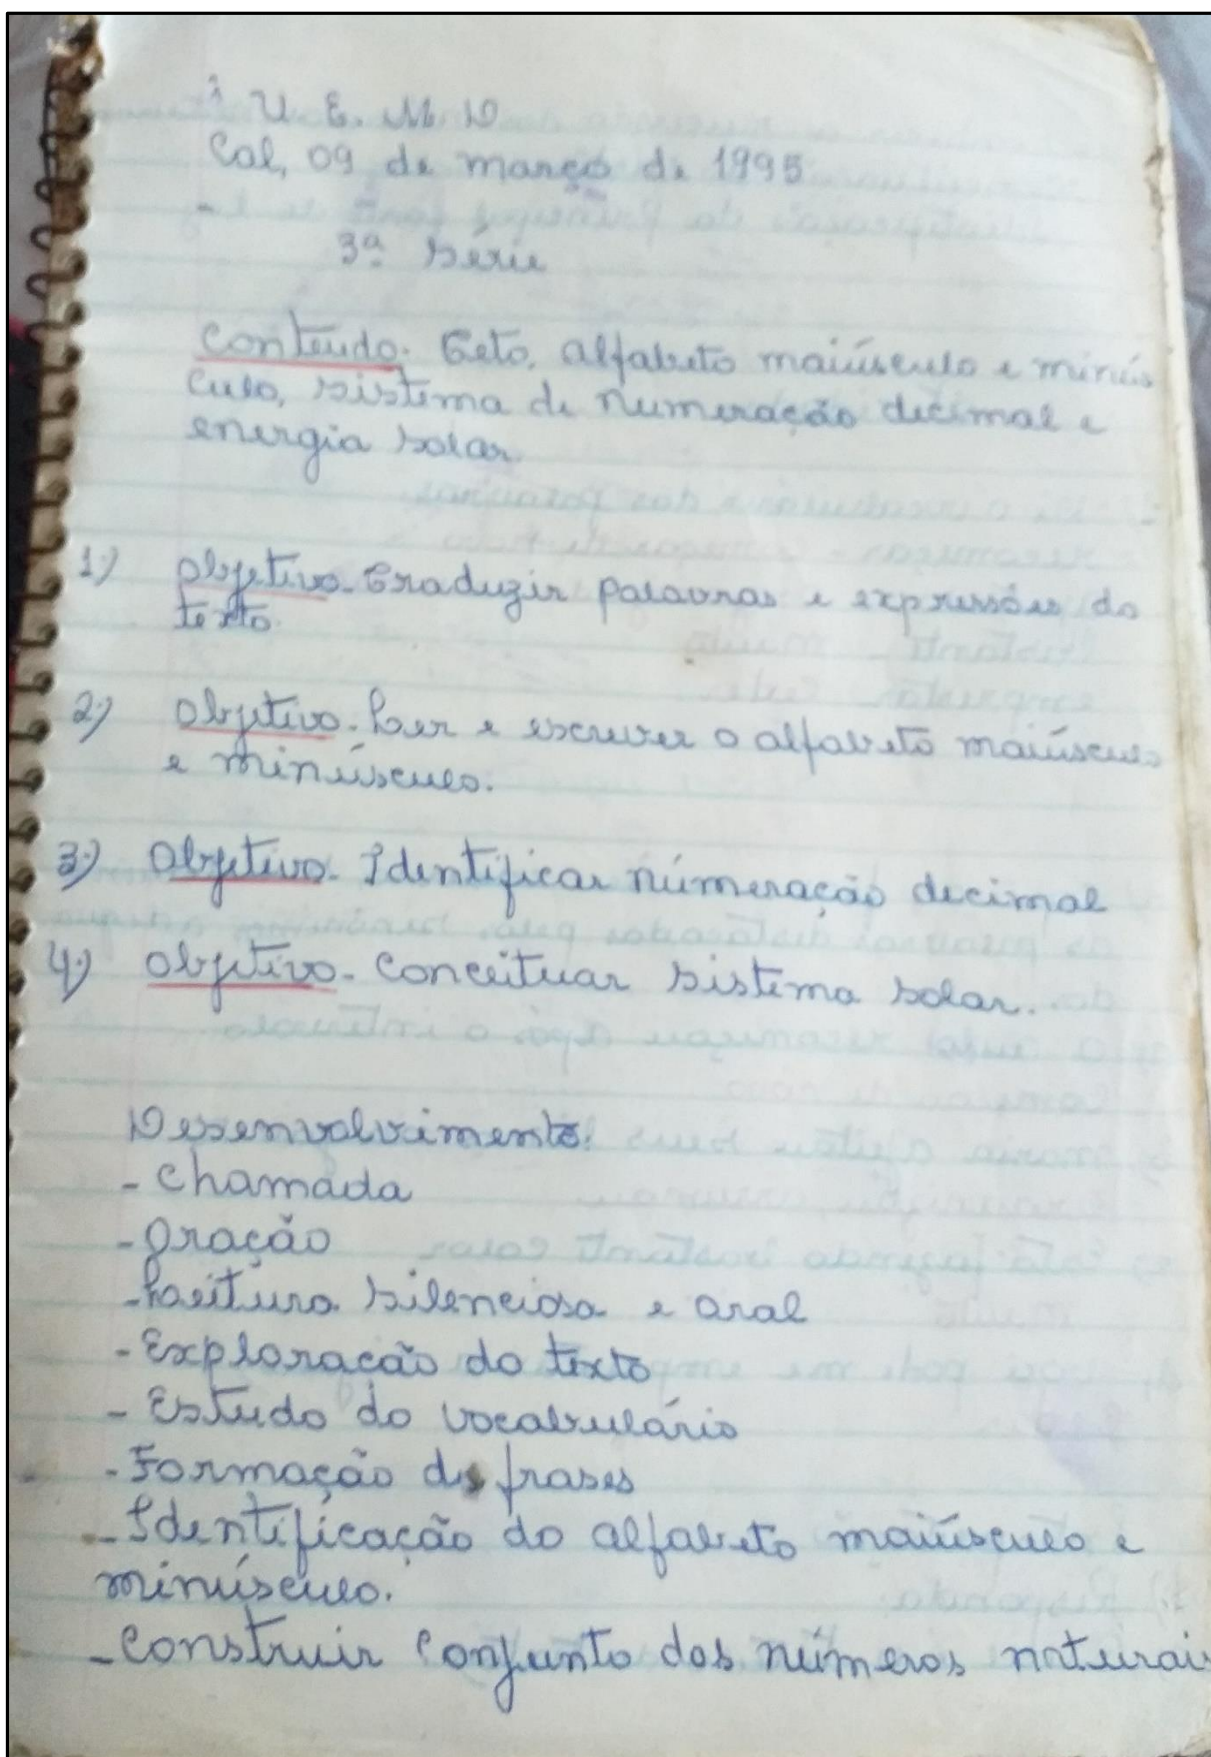 U. E. M. D
Cal, 09 de março de 1995
3ª série
Conteúdo. Texto, alfabeto maiúsculo e minús
culo, sistema de numeração decimal e
energia solar.
1º) Objetivo. Traduzir palavras e expressões do
texto.
2º) Objetivo. Ler e escrever o alfabeto maiúsculo
e minúsculo.
3º) Objetivo. Identificar númeração decimal
4º) Objetivo. Conceituar sistema solar.
Desenvolvimento:
- Chamada
- Oração
- Leitura silenciosa e oral
- Exploração do texto
- Estudo do vocabulário
- Formação de frases
- Identificação do alfabeto maiúsculo e
minúsculo.
- Construir conjunto dos números naturais